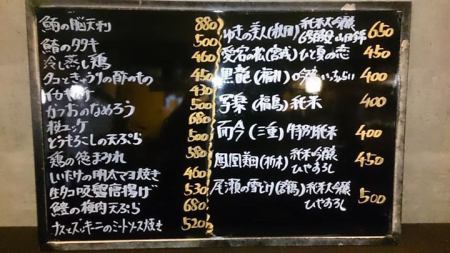 鮪の脳天刺 880
鯵のタタキ 500
冷し蒸し鶏 460
タコときゅうりの酢のもの 450
イカキムチ 430
かつおのなめろう 500
桜ユッケ 680
とうもろこしの天ぷら 500
鶏の徳まみれ 580
しいたけの明太マヨ焼き 460
生タコ吸盤唐揚げ 530
鱧の梅肉天ぷら 680
ナスとズッキーニのミートソース焼き 520
ゆきの美人(秋田) 純米大吟醸 山田錦 650
愛宕の松(宮城) ひと夏の恋 450
黒龍(福井) 吟醸いっちょらい 400
写楽(福島) 純米 400
而今(三重) 特別純米 400
鳳凰美田(栃木) 純米吟醸 ひやおろし 450
尾瀬の雪どけ(群馬) 純米大吟醸 ひやおろし 500